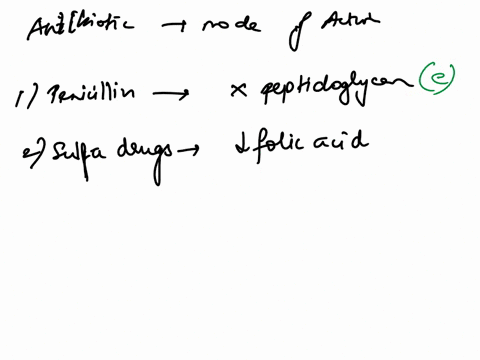 Antibiotic → mode of Action
1) Penicillin → × peptidoglycan (e)
2) Sulfa drugs → ↓ folic acid